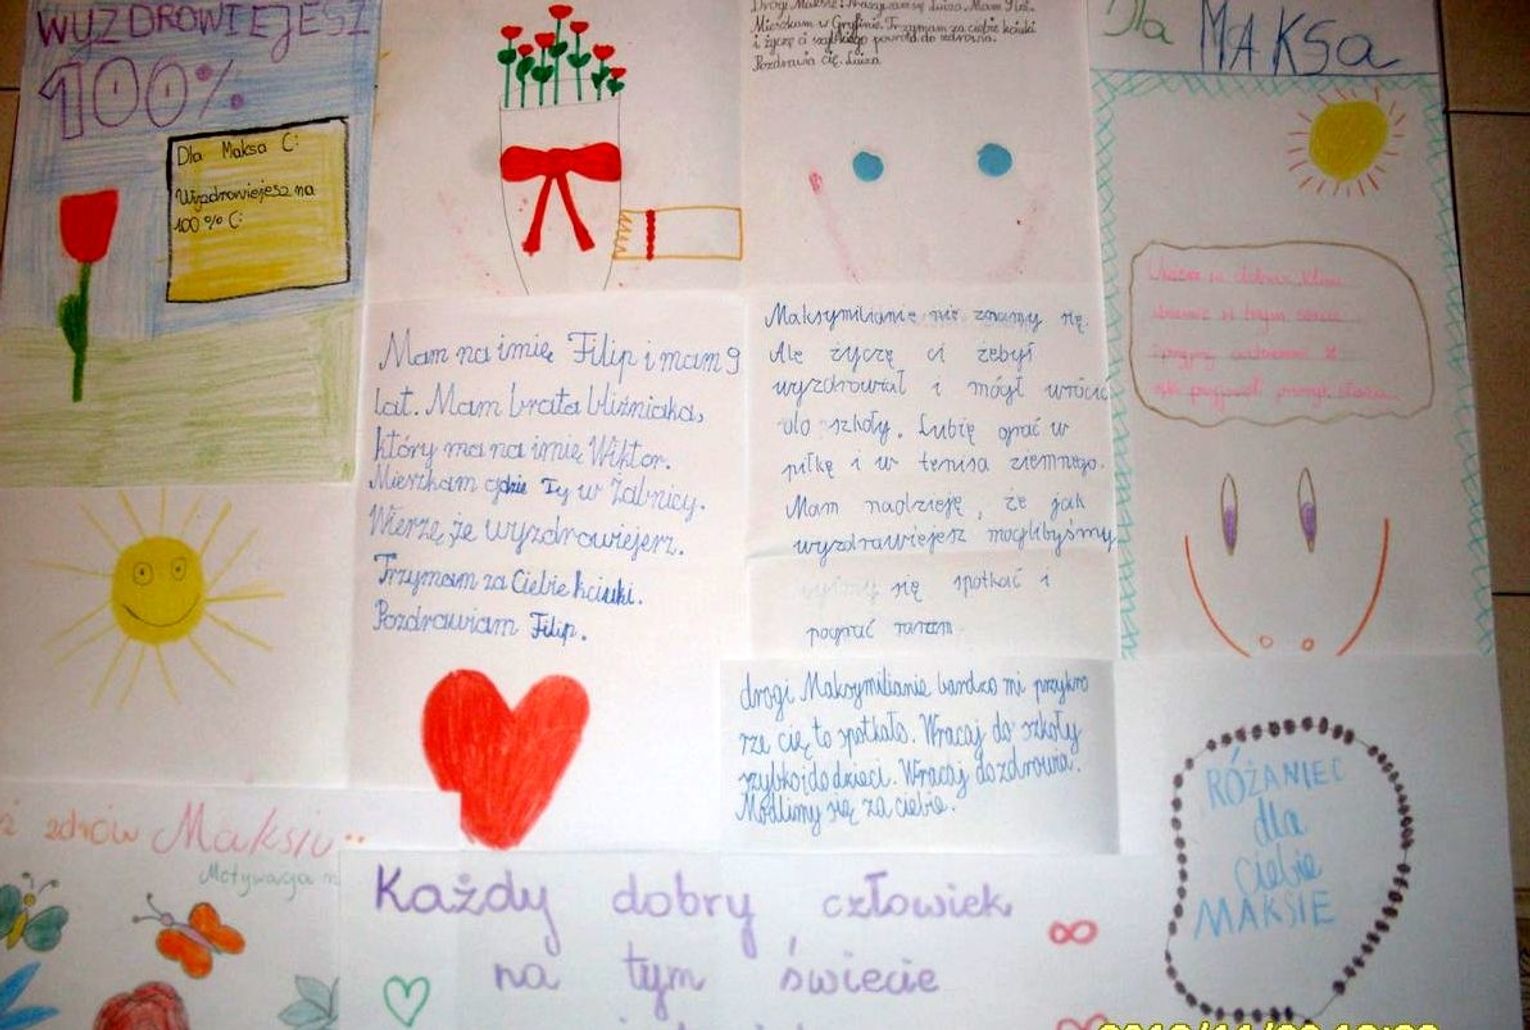 WYZDROWIEJESZ
100%
Dla Maksa C:
Wyzdrowiejesz na
100% C:
Mieszkam w Gryfinie. Trzymam za ciebie kciuki
i życzę ci szybkiego powrotu do zdrowia.
Pozdrawia cię Luiza
Dla MAKSa
Mam na imię Filip i mam 9
lat. Mam brata bliźniaka,
który ma na imię Wiktor.
Mieszkam gdzie Ty w Żabnicy.
Wierzę, że wyzdrowiejerz.
Trzymam za Ciebie kciuki.
Pozdrawiam Filip.
Maksymilianie nie znamy się.
Ale życzę ci żebyś
wyzdrowiał i mógł wrócić
do szkoły. Lubię grać w
piłkę i w tenisa ziemnego.
Mam nadzieję, że jak
wyzdrawiejesz moglibyśmy
się spotkać i
pograć razem
drogi Maksymilianie bardzo mi przykro
rze cię to spotkało. Wracaj do szkoły
szybko i do dzieci. Wracaj do zdrowia.
Modlimy się za ciebie.
zdrów Maksiu
Motywacja
Każdy dobry człowiek
na tym świecie
RÓŻANIEC
dla
Ciebie
MAKSIE